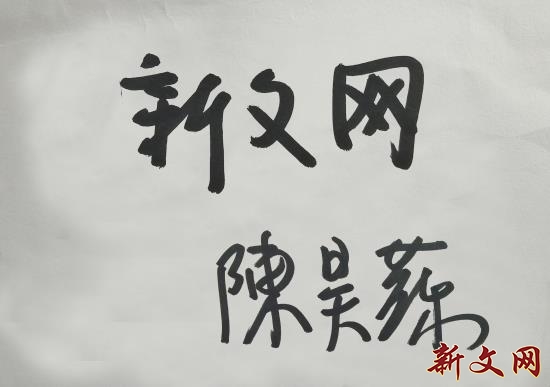 新文网
陳昊蘇
新文网